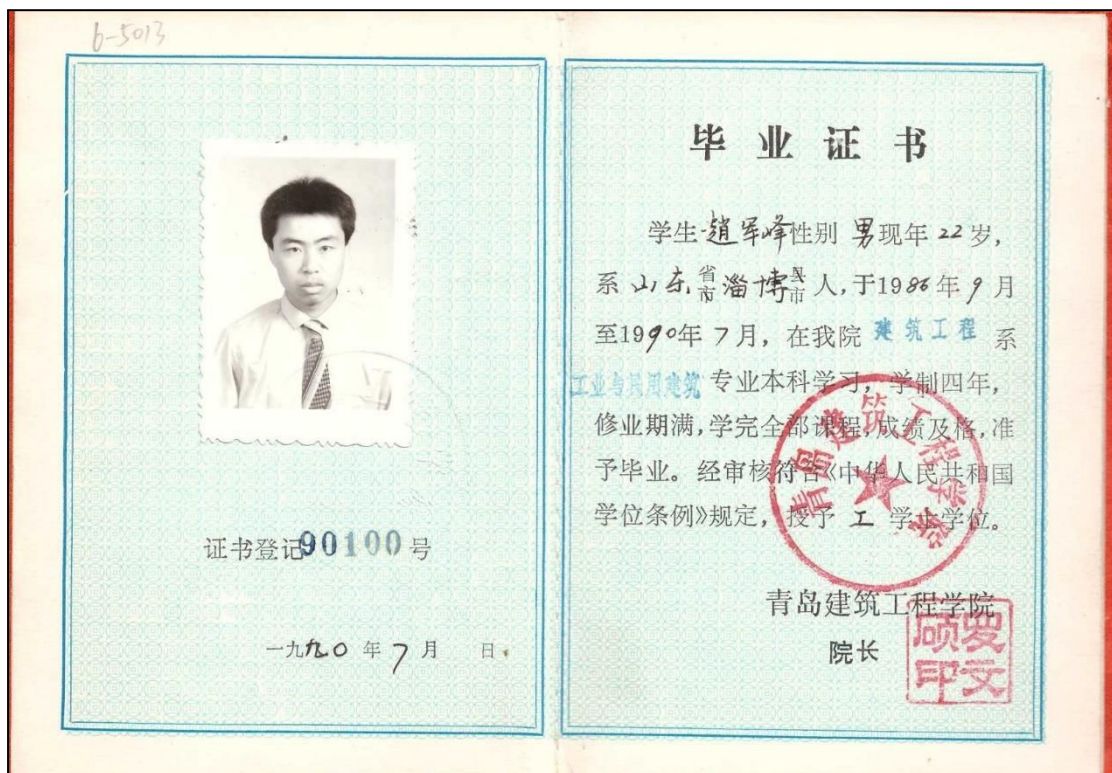 6-5013
证书登记90100号
一九九0年7月 日
毕业证书
学生 趙军峰 性别 男 现年 22 岁,
系 山东 省市 淄博 县市 人,于1986年9月
至1990年7月,在我院 建筑工程 系
工业与民用建筑 专业本科学习,学制四年,
修业期满,学完全部课程,成绩及格,准
予毕业。经审核符合《中华人民共和国
学位条例》规定,授予 工 学士学位。
青岛建筑工程学院
青岛建筑工程学院
院长
罗文硕印